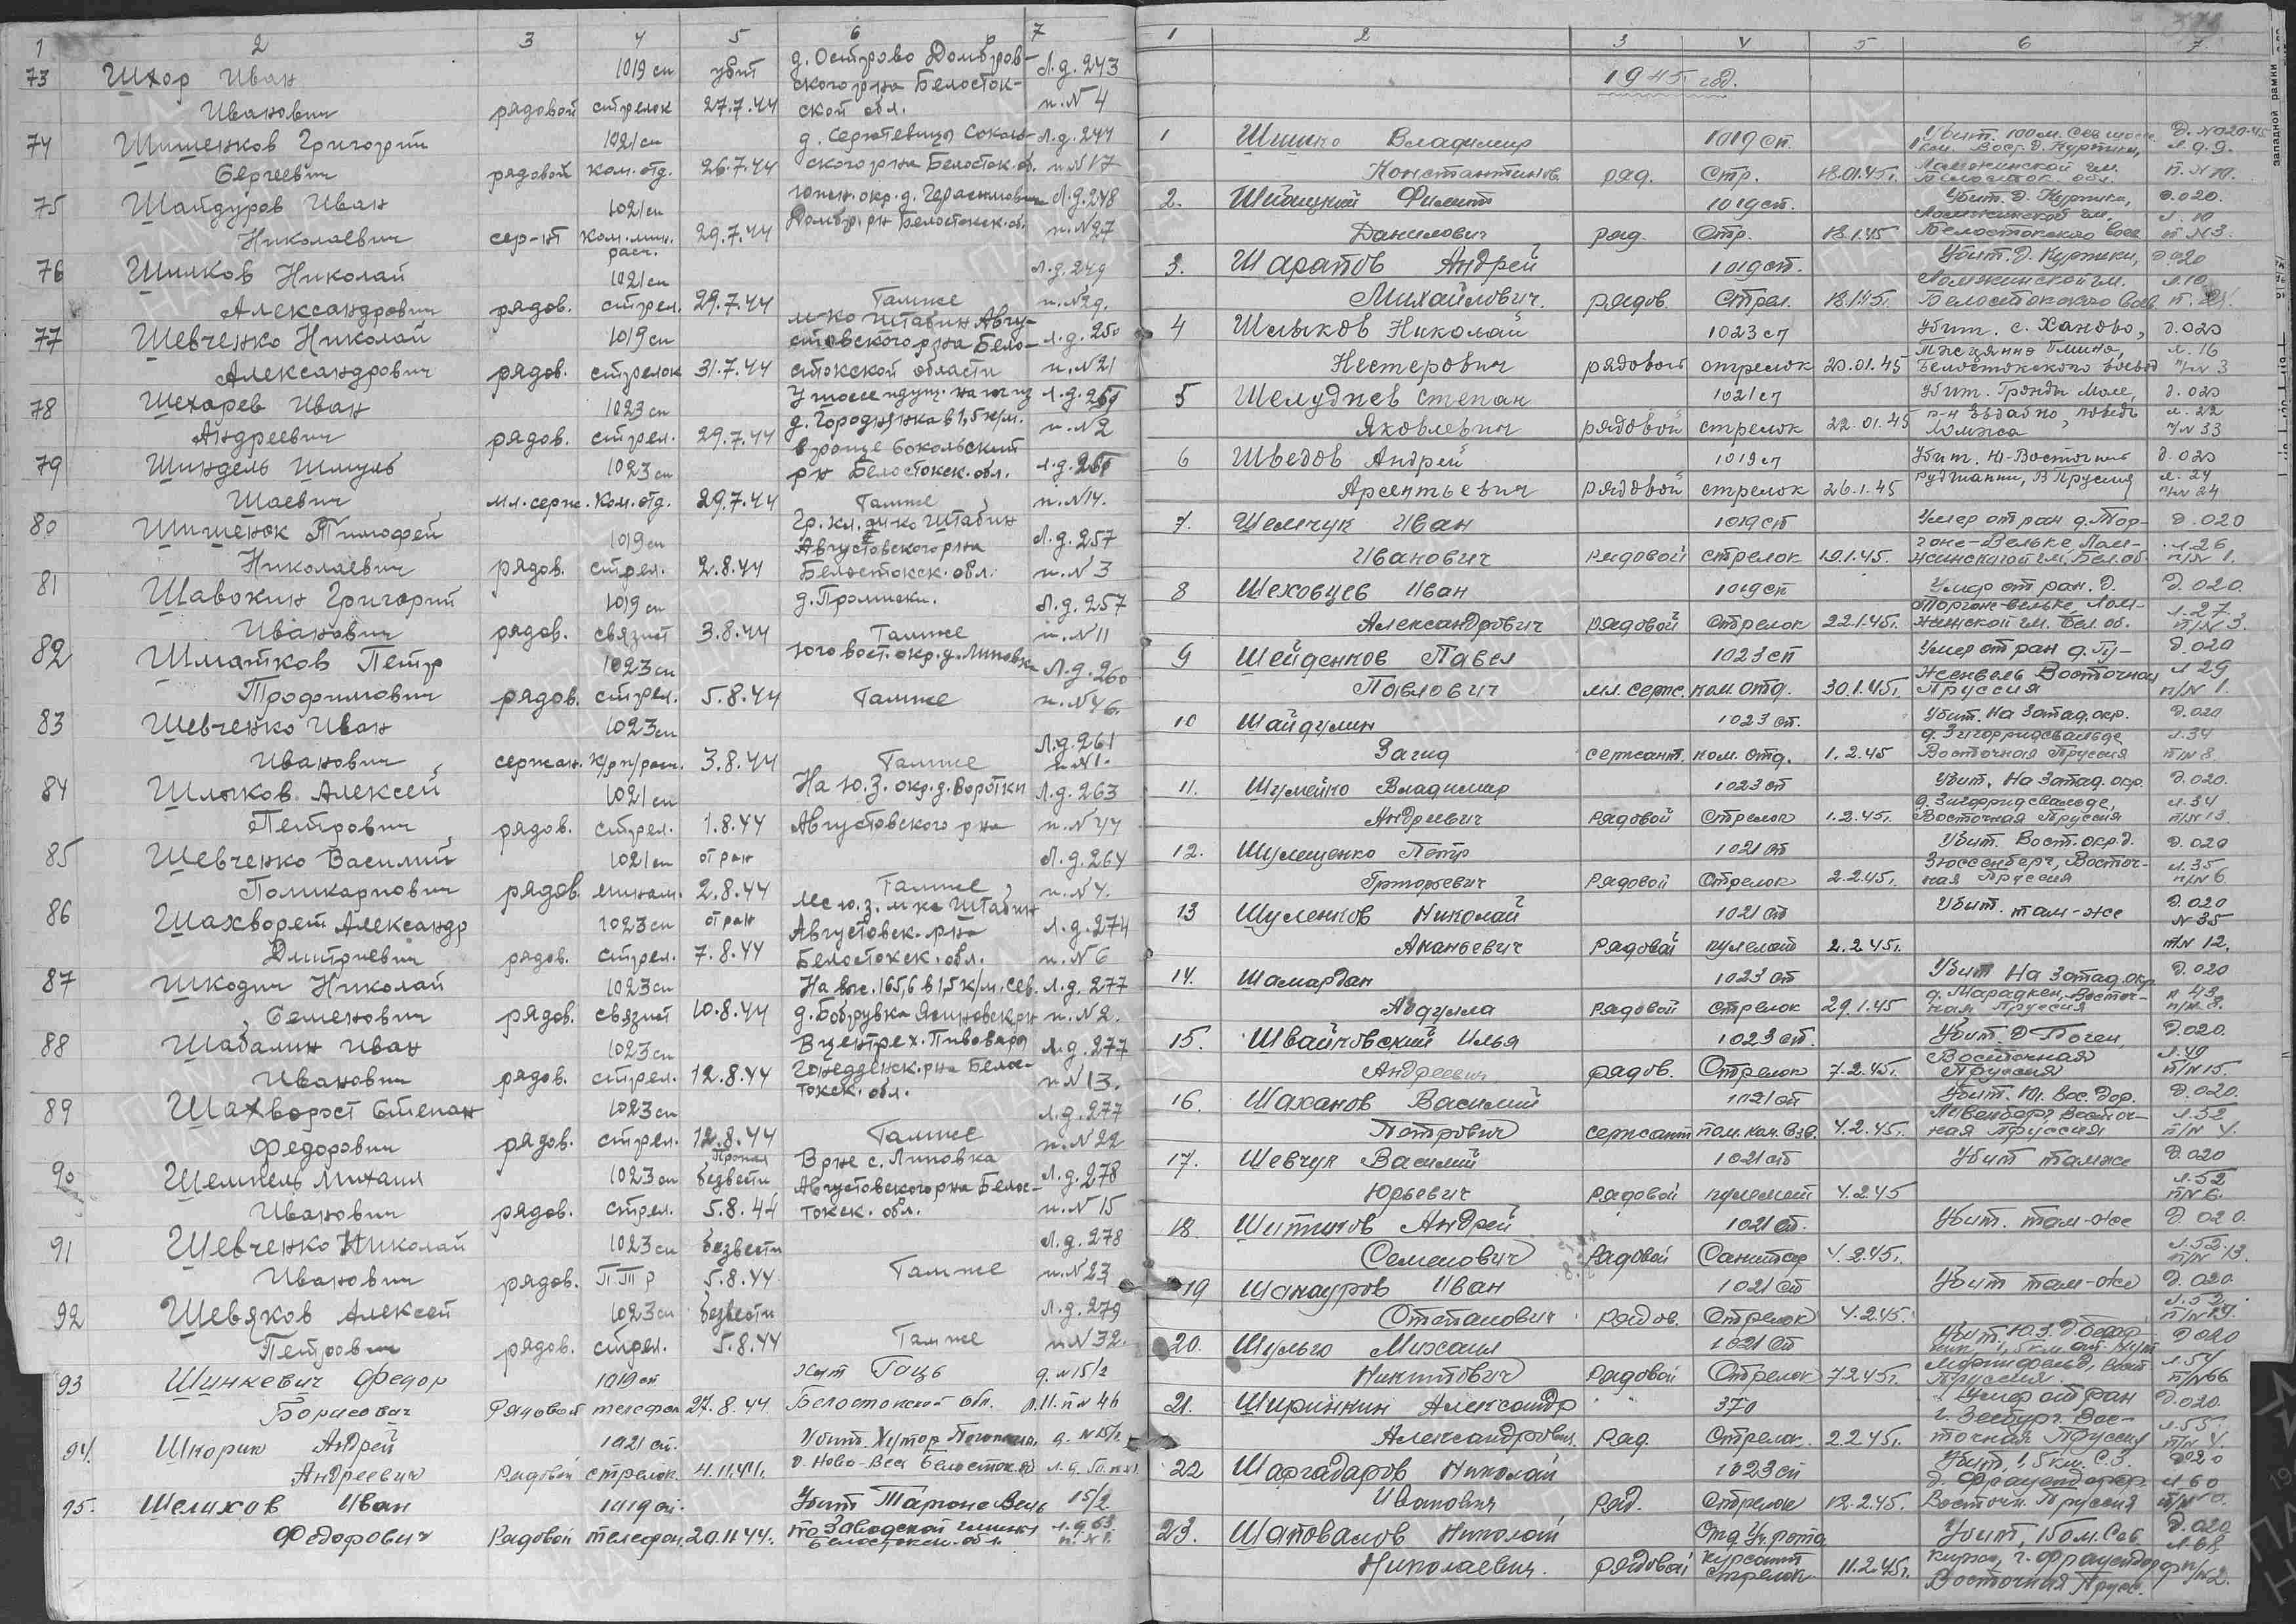 1 2 3 4 5 6 7
73 Шхор Иван 1019 сп убит д. Острово Домбров- Л.д. 243
ского р-на Белосток-
Иванович рядовой стрелок 27.7.44 ской обл. п.№ 4
74 Шишенков Григорий 1021 сп д. Сержтевицы Соколь- Л.д. 244
Сергеевич рядовой ком. отд. 26.7.44 ского р-на Белосток. об. п.№ 17
75 Шайдуров Иван 1021 сп южн. окр. д. Герасимовичи Л.д. 248
Николаевич сер-нт ком. мин. расч. 29.7.44 Домбр. рн Белостокск. об. п.№ 27
76 Шилков Николай 1021 сп Л.д. 249
Александрович рядов. стрел. 29.7.44 Тамже п.№ 29.
77 Шевченко Николай 1019 сп м-ко Штабин Авгу- Л.д. 250
стовского р-на Бело-
Александрович рядов. стрелок 31.7.44 стокской области п.№ 21
78 Шехарев Иван 1023 сп У шоссе идущ. на юг из Л.д.
д. Городнянка в 1,5 к/м.
Андреевич рядов. стрел. 29.7.44 в роще Сокольский п.№ 2
79 Шиндель Шмуль 1023 сп р-н Белостокск. обл. Л.д.
Шаевич мл. серж. Ком. отд. 29.7.44 Тамже п.№ 14.
80 Шишенок Тимофей 1019 сп Гр. кл. м-ко Штабин Л.д. 257
Августовского р-на
Николаевич рядов. стрел. 2.8.44 Белостокск. обл. п.№ 3
81 Шавокин Григорий 1019 сп д. Промиски. Л.д. 257
Иванович рядов. связист 3.8.44 Тамже п.№ 11
82 Шматков Петр 1023 сп юговост. окр. д. Липовка Л.д. 260
Трофимович рядов. стрел. 5.8.44 Тамже п.№ 46.
83 Шевченко Иван 1023 сп Л.д. 261
Иванович сержан. к/р п/расч. 3.8.44 Тамже п.№ 1.
84 Шлыков Алексей 1021 сп На ю.з. окр. д. Воротки Л.д. 263
Петрович рядов. стрел. 1.8.44 Августовского рна п.№ 44
85 Шевченко Василий 1021 сп от ран Л.д. 264
Поликарпович рядов. мином. 2.8.44 Тамже п.№ 4.
86 Шахворет Александр 1023 сп от ран лес ю.з. м-ка Штабин Л.д. 274
Августовск. р-на
Дмитриевич рядов. стрел. 7.8.44 Белостокск. обл. п.№ 6
87 Шкодич Николай 1023 сп На выс. 165,6 в 1,5 к/м. сев. Л.д. 277
Семенович рядов. связист 10.8.44 д. Бобрувка Ясиновск рн п.№ 2.
88 Шабалин Иван 1023 сп В центре х. Пивовара Л.д. 277
Иванович рядов. стрел. 12.8.44 Гонедзенск. р-на Бело- п.№ 13.
токск. обл.
89 Шахворост Степан 1023 сп Л.д. 277
Федорович рядов. стрел. 12.8.44 Тамже п.№ 22
90 Шемпель Михаил 1023 сп Пропал безвести В рне с. Липовка Л.д. 278
Августовского р-на Белос-
Иванович рядов. стрел. 5.8.44 токск. обл. п.№ 15
91 Шевченко Николай 1023 сп безвести Л.д. 278
Иванович рядов. ПТР 5.8.44 Тамже п.№ 23
92 Шевяков Алексей 1023 сп безвести Л.д. 279
Петрович рядов. стрел. 5.8.44 Тамже п.№ 32.
93 Шинкевич Федор 1019 сп Хут Гаць д. № 15/2
Борисович Рядовой телефон 27.8.44 Белостокской обл. Л. 11. п № 46
94. Шкорин Андрей 1021 сп. Убит. Хутор д. № 15/2
Андреевич Рядовой стрелок 4.11.44г. д. Ново-Вес Белосток. об л.д. 50.
95. Шелихов Иван 1019 сп. Убит 15/2
Федорович Рядовой телефон. 20.11.44. Заводской гмины л.д 63
Белостокск. обл.
1 2 3 V 5 6 7
1945 год.
1 Шишко Владимир 1019 сп. Убит. 100 м. сев шоссе Д. №020-45
1 км. Вост. д. Куртики, Л. д 9.
Константинов. ряд. Стр. 18.01.45г. Ломжинской гм. Белосток обл. П. № 10.
2. Шибицкий Филипп 1019 сп. Убит. д. Куртики, Д.020.
Ломжинской гм. Л. 10
Данилович ряд. Стр. 18.1.45 Белостокского воев п №3.
3. Шарапов Андрей 1019 сп. Убит. д. Куртики, Д 020
Ломжинской гм. Л.10.
Михайлович. рядов. Стрел. 18.1.45г. Белостокского воев. п.
4 Шлыков Николай 1023 сп Убит. с. Ханово, д. 020
л. 16
Нестерович рядовой стрелок 20.01.45 Белостокского воевод п/№ 3
5 Шелуднев Степан 1021 сп Убит. Гронды Мале, д. 020
л. 22
Яковлевич рядовой стрелок 22.01.45 Ломжа п/№ 33
6 Шведов Андрей 1019 сп Убит. Ю-Восточнее д. 020
л. 24
Арсентьевич рядовой стрелок 26.1.45 Рудтанни, В Пруссия п/№ 24
7. Шемчук Иван 1019 сп Умер от ран д. Тор- Д. 020
гоне-Вельке, Лом- Л 26
Иванович рядовой стрелок 19.1.45. жинской гм. Бел. об. п/№ 1.
8 Шеховцев Иван 1019 сп Умер от ран. д. Д 020.
Торгоне-Вельке, Лом- Л. 27.
Александрович рядовой Стрелок 22.1.45г. жинской гм. Бел. об. п/№ 3.
9 Шейденков Павел 1023 сп Умер от ран д. Гу- Д. 020
женвель Восточная Л 29
Павлович мл. серж. ком. отд. 30.1.45г. Пруссия п/№ 1.
10 Шайдулин 1023 сп. Убит. На Запад. окр. Д. 020
д. Зигорридсвальде Л.34
Загид сержант. ком. отд. 1.2.45 Восточная Пруссия п/№ 8
11. Шумейко Владимир 1023 сп Убит. На Запад. окр. Д. 020.
д. Зигорридсвальде, Л.34
Андреевич рядовой Стрелок 1.2.45г. Восточная Пруссия п/№ 13.
12. Шулещенко Петр 1021 сп Убит. Вост. окр. д. Д. 020
Зюссенберг, Восточ- Л.35
Григорьевич Рядовой Стрелок 2.2.45г. ная Пруссия п/№ 6
13 Шуленков Николай 1021 сп Убит. там-же Д. 020
№ 35
Ананьевич Рядовой пулемет 2.2.45г. п/№ 12.
14. Шамардан 1023 сп Убит На Запад. окр Д. 020
д. Марадкен, Восточ- Л 43
Абдулла рядовой стрелок 29.1.45 ная Пруссия п/№ 8.
15. Швайчовский Илья 1023 сп. Убит. д Поген, Д.020.
Восточная Л.49
Андреевич рядов. Стрелок 7.2.45г. Пруссия п/№ 15.
16. Шаханов Василий 1021 сп Убит. Юг. Вос. дор. Д. 020.
Восточ- Л.52
Петрович сержант пом. ком. взв. 4.2.45г. ная Пруссия п/№ 4.
17. Шевчук Василий 1021 сп Убит тамже Д. 020
Л.52
Юрьевич Рядовой пулемет 4.2.45 п№ 6.
18. Шитиков Андрей 1021 сп. Убит. там-же Д. 020.
Л.52.
Семенович Рядовой Санитар 4.2.45г. п/№ 13.
19 Шакауров Иван 1021 сп Убит там-же Д. 020.
Л.52.
Степанович Рядов. Стрелок 4.2.45г.
20. Шульго Михаил 1021 сп Убит. Ю.З. Д 020
Л.54
Никитович Рядовой Стрелок 7.2.45г. Пруссия п/№ 66
21. Ширинкин Александр 370 Умер от ран Д. 020.
г. Зеебург. Вос- Л.55
Александрович. Ряд. Стрелок. 2.2.45г. точная Пруссия п/№ 4.
22 Шаргадаров Николай 1023 сп Убит, 1,5 км. С.З. Д020
д. Фрауендорф Л 60
Иванович Ряд. Стрелок 12.2.45. Восточн. Пруссия
23. Шаповалов Николай Отд Уч. рота Убит, 150 м. Сев Д. 020
кирхи, г. Фрауендорф Л.68
Николаевич. Рядовой курсант стрелок 11.2.45г. Восточная Прусс. п/№2.
западной рамки